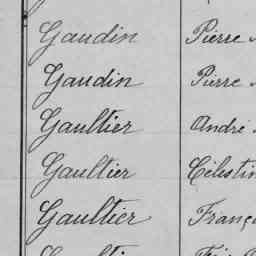 Gaudin Pierre
Gaudin Pierre
Gaultier André
Gaultier Célestin
Gaultier Franç